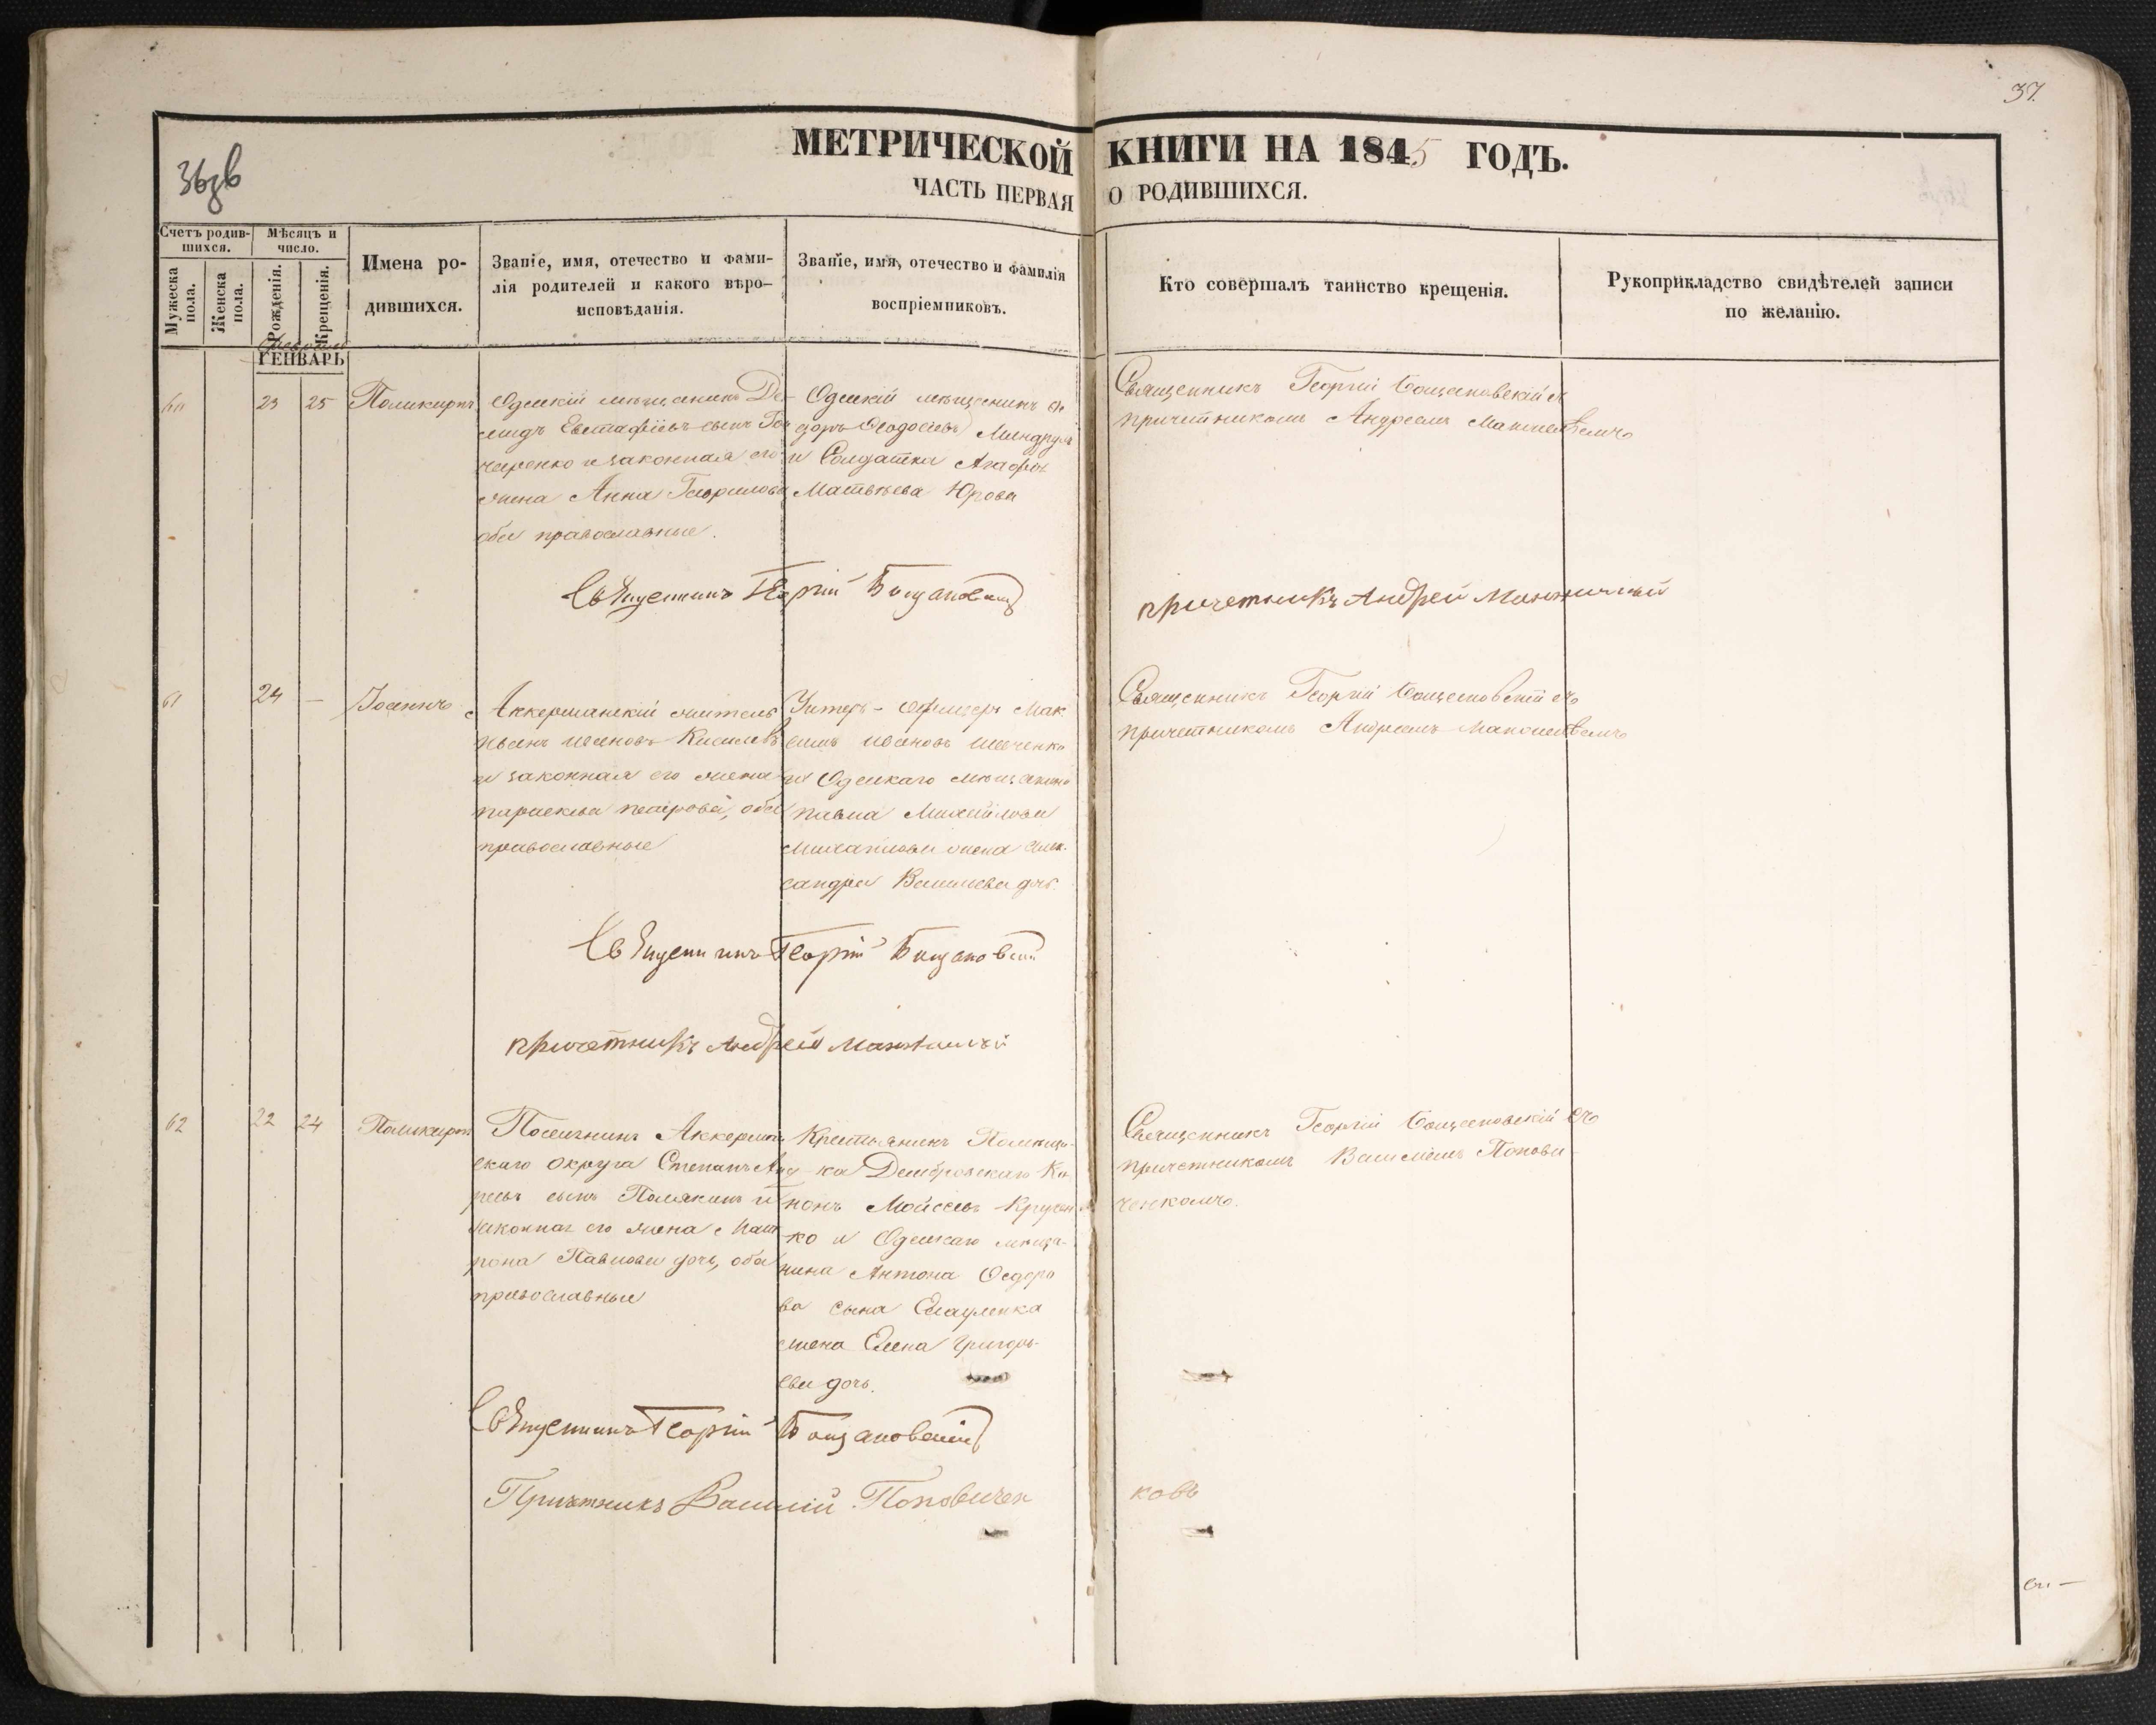 37.
МЕТРИЧЕСКОЙ КНИГИ НА 1845 ГОДЪ.
36зв
ЧАСТЬ ПЕРВАЯ О РОДИВШИХСЯ.
Счетъ родив-
шихся.
Мужеска
пола.
Женска
пола.
Мѣсяцъ и
число.
Рожденія.
Крещенія.
Имена ро-
дившихся.
Званіе, имя, отечество и фами-
лія родителей и какого вѣро-
исповѣданія.
Званіе, имя, отечество и фамилія
воспріемниковъ.
Кто совершалъ таинство крещенія.
Рукоприкладство свидѣтелей записи
по желанію.
Февраль
ГЕНВАРЬ
60 23 25 Поликарпъ
Одескій мѣщанинъ Де-
мидъ Евстафіевъ сынъ Гон
чаренко и законная его
жена Анна Гаврилова
оба православные.
Одескій мѣщанинъ Ѳе
доръ Ѳеодосіевъ
и Солдатка Агафія
Матвѣева Юрова
Священникъ Георгій Бощановскій съ
причетникомъ Андреемъ
Священникъ Георгій Бощановскій
причетникъ Андрей
61 24 — Іоаннъ
Аккерманскій житель
Иванъ Ивановъ Киселевъ
и законная его жена
Параскева Петрова, оба
православные
Унтеръ-Офицеръ Мак
симъ Ивановъ Шевченко
и Одескаго мѣщанина
Павла Михайлова
жена Алек
сандра Васильева дочь.
Священникъ Георгій Бощановскій съ
причетникомъ Андреемъ
Священникъ Георгій Бощановскій
причетникъ Андрей
62 22 24 Поликарпъ
Поселянинъ Аккерман
скаго округа Степанъ Анд
реевъ сынъ Полякинъ и
законная его жена Мат
рона Павлова дочь, оба
православные
Крестьянинъ Помѣщи-
ка Ко
нонъ Моисеевъ Кручен
ко и Одескаго мѣща-
нина Антона Ѳедоро
ва сына
жена Елена Григорь-
ева дочь.
Священникъ Георгій Бощановскій съ
причетникомъ Василіемъ Попови-
ченкомъ.
Священникъ Георгій Бощановскій
Причетникъ Василій Поповичен
ковъ